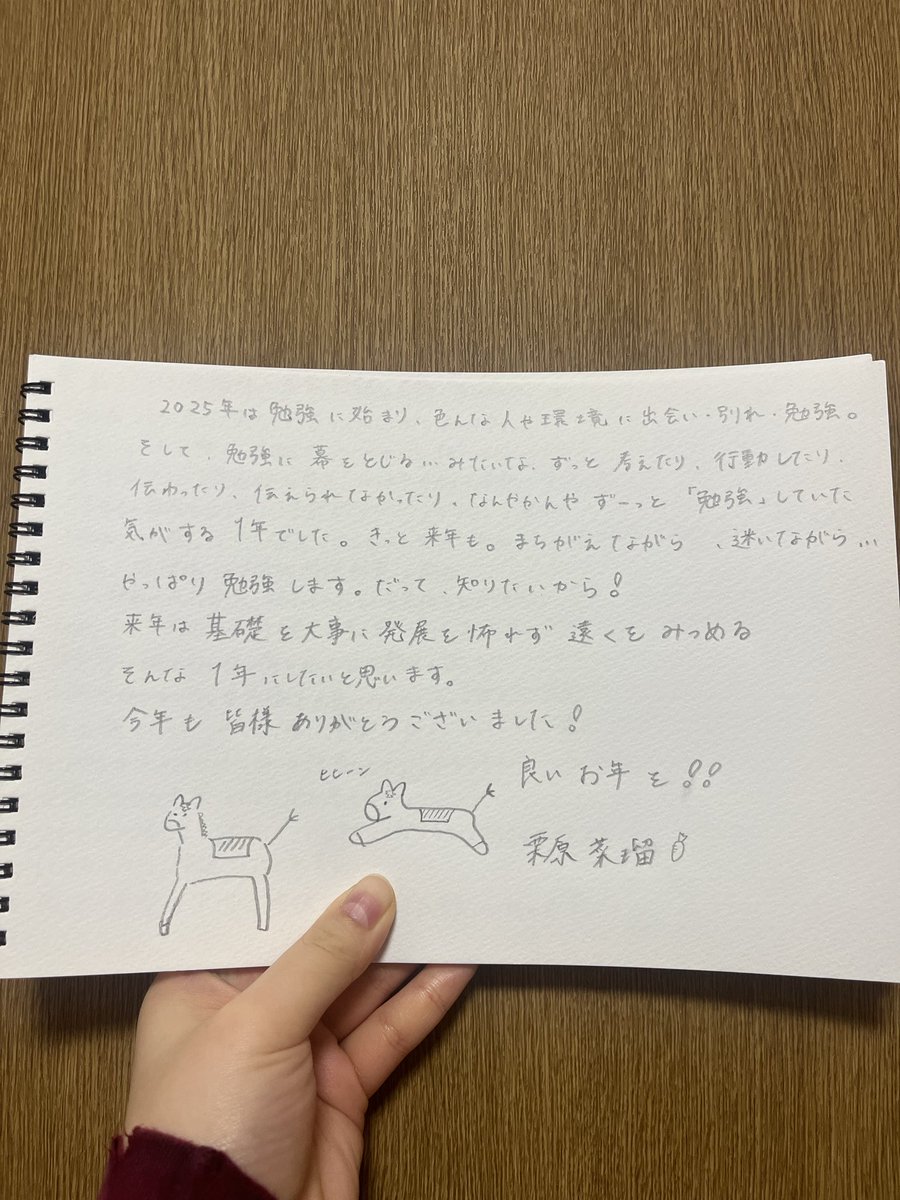 2025年は勉強に始まり、色んな人や環境に出会い・別れ・勉強。
そして、勉強に幕をとじる…みたいな、ずっと考えたり、行動したり、
伝わったり、伝えられなかったり、なんやかんやずーっと「勉強」していた
気がする1年でした。きっと来年も。まちがえながら、迷いながら…
やっぱり勉強します。だって、知りたいから!
来年は基礎を大事に発展を怖れず遠くをみつめる
そんな1年にしたいと思います。
今年も皆様ありがとうございました!
ヒヒーン
良いお年を!!
栗原菜瑠